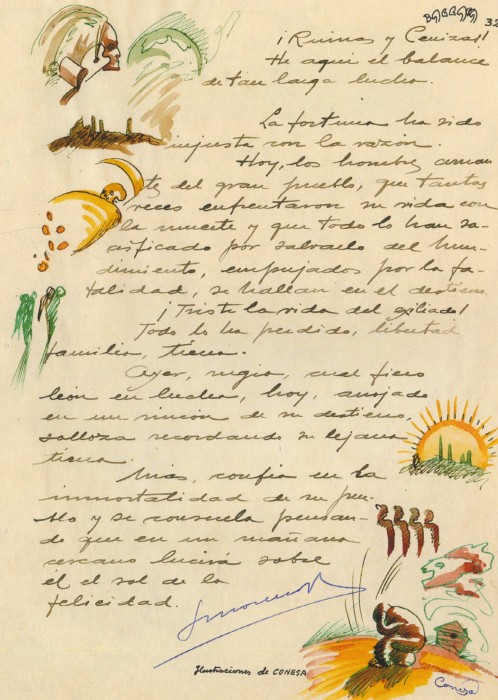 32
¡Ruinas y Cenizas!
He aqui el balance
de tan larga lucha.
La fortuna ha sido
injusta con la razón.
Hoy, los hombres aman
tes del gran pueblo, que tantas
veces enfrentaron su vida con
la muerte y que todo lo han sa-
crificado por salvarlo del hun-
dimiento, empujados por la fa-
talidad, se hallan en el destierro
¡Triste la vida del exiliado!
Todo lo ha perdido, libertad
familia, tierra.
Ayer, rugia, cual fiero
león en lucha, hoy, arrojado
en un rincón de su destierro,
solloza recordando su lejana
tierra.
Mas, confia en la
inmortalidad de su pue-
blo y se consuela pensan-
do que en un mañana
cercano lucirá sobre
él el sol de la
felicidad.
Ilustraciones de CONESA
Conesa